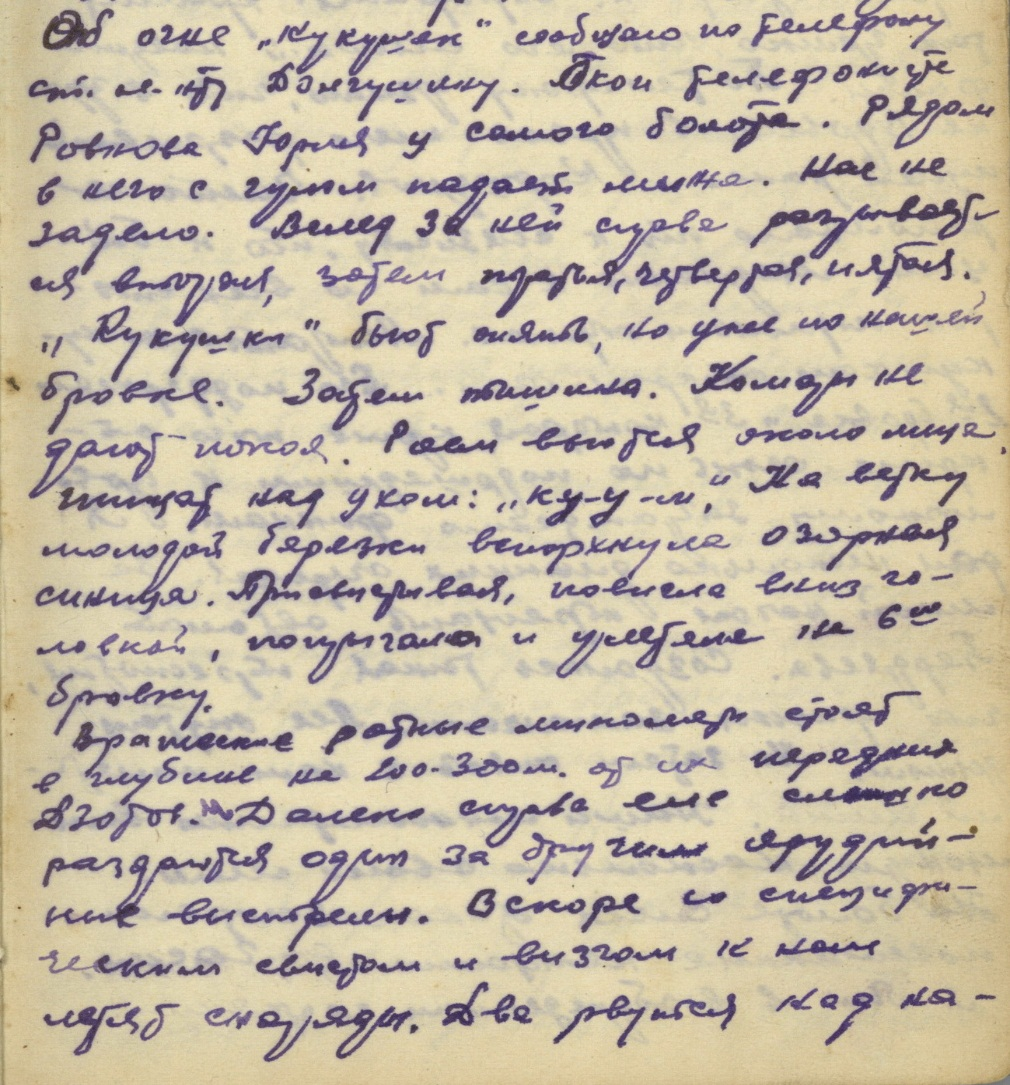 Об огне „кукушек“ сообщаю по телефону
ст. л-нту Долгушину. Окоп телефониста
Ровнова Юрия у самого болота. Рядом
в него с гулом падает мина. Нас не
задело. Вслед за ней справа разрывает-
ся вторая, затем третья, четвертая, пятая.
„Кукушки“ бьют опять, но уже по нашей
бровке. Затем тишина. Комары не
дают покоя. Роем вьются около лица.
пищат над ухом: „ку-у-м“. На ветку
молодой березки вспорхнула озорная
синица. Присвистывая, повисла вниз го-
ловкой, попрыгала и улетела на 6ую
бровку.
Вражеские ротные минометы стоят
в глубине на 200-300м. от их передних
Дзотов. Далеко справа еле слышно
раздаются один за другим орудий-
ные выстрелы. Вскоре со специфи-
ческим свистом и визгом к нам
летят снаряды. Два рвутся над на-